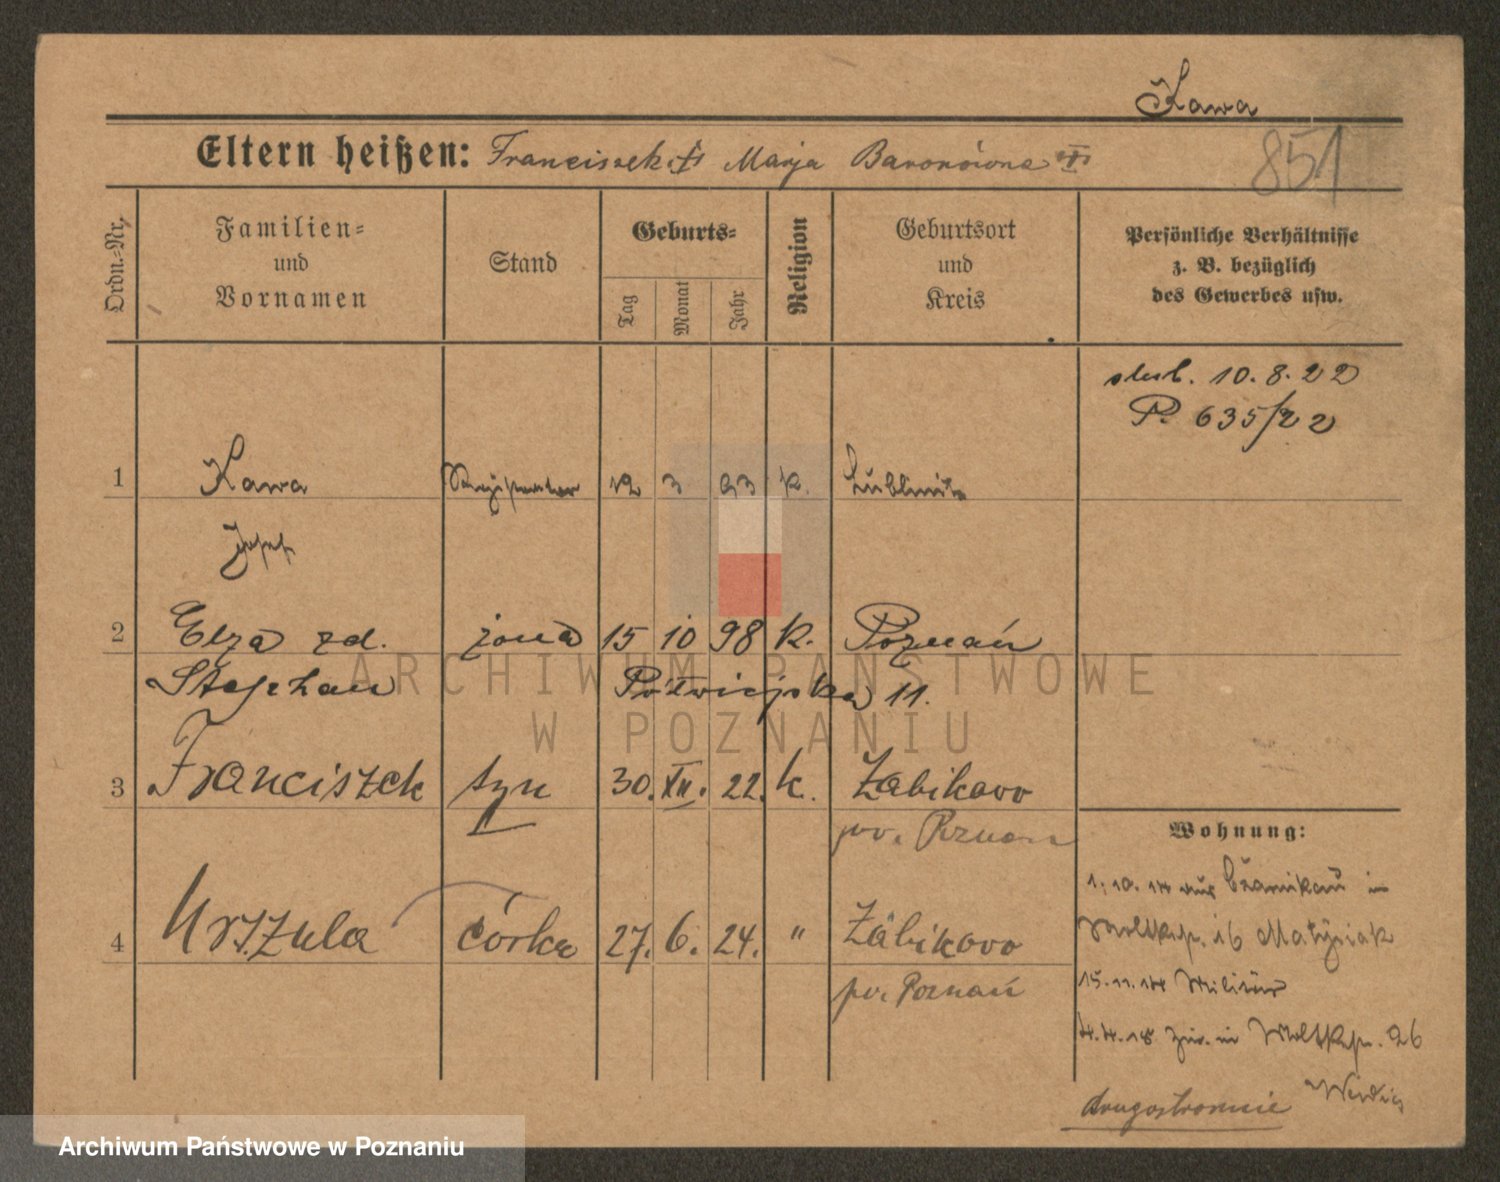 Kawa
Eltern heißen: Franciszek Marja Baronówna
851
Ordn.=Nr.
Familien=
und
Vornamen
Stand
Geburts=
Tag
Monat
Jahr
Religion
Geburtsort
und
Kreis
Persönliche Verhältnisse
z. B. bezüglich
des Gewerbes usw.
slub. 10.8.22
P. 635/22
1 Kawa 12 3 93 k. Lublinitz
Josef
2 Elza zd. żona 15 10 98 k. Poznań
Stephan Półwiejska 11.
3 Franciszek syn 30. XII. 22. k. Żabikovo
pow. Poznań
4 Urszula córka 27. 6. 24. " Żabikovo
pow. Poznań
Wohnung:
1.10.14 aus Czarnikau in
16 Matysiak
15.11.14 Militär
4.4.18 zur. in 26
drugostronnie
ARCHIWUM PAŃSTWOWE
W POZNANIU
Archiwum Państwowe w Poznaniu